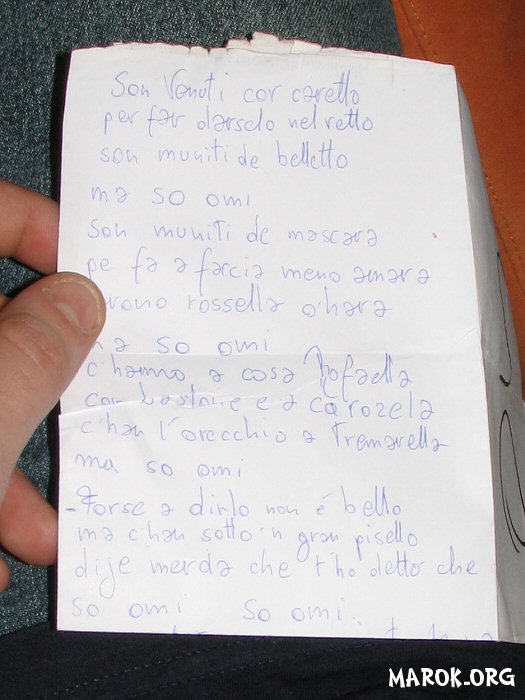 Son Venuti cor caretto
per far darselo nel retto
son muniti de belletto
ma so omi
son muniti de mascara
pe fa a farcia meno amara
rossella o'hara
so omi
c'hanno a cosa Rafaella
con bastone e a carozela
c'han l'orecchio a Tremarella
ma so omi
- Forse a dirlo non é bello
ma c'han sotto 'n gran pisello
dije merda che t'ho detto che
so omi so omi..
MAROK.ORG